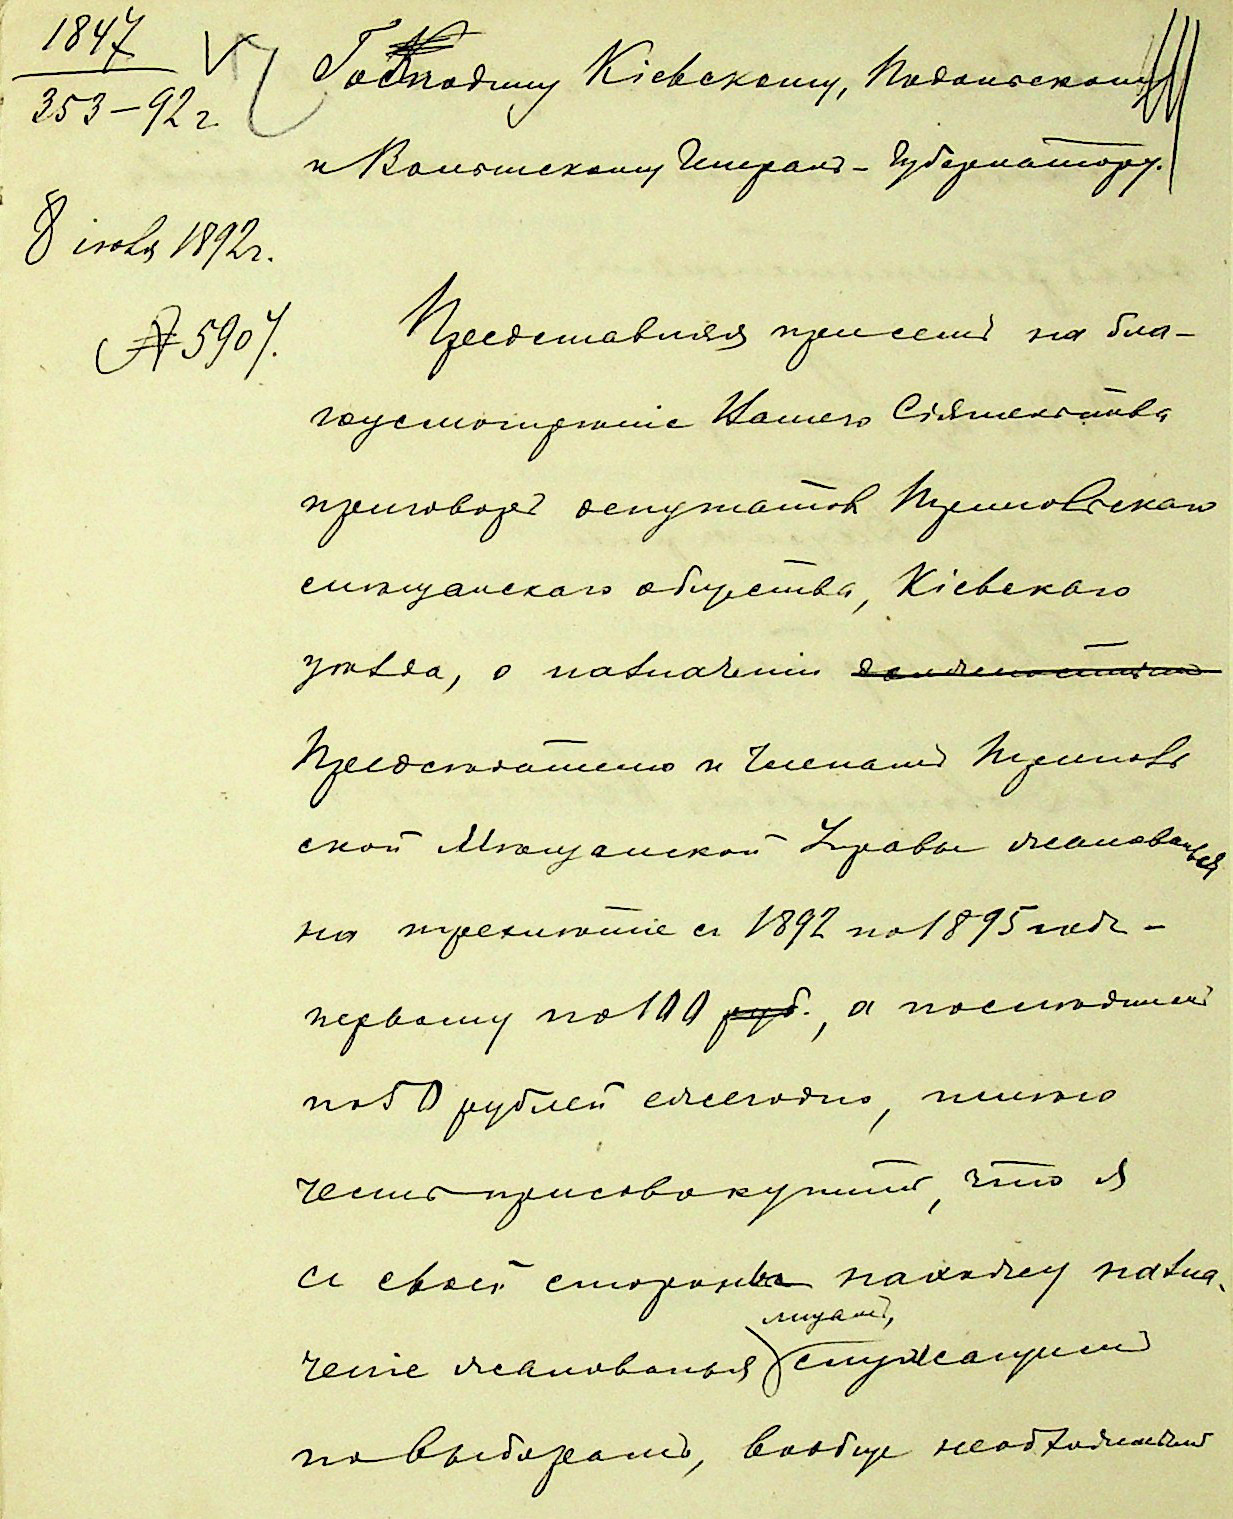 1847
353-92 г.
Господину Кіевскому, Подольскому
и Волынскому Генералъ-Губернатору.
8 іюля 1892 г.
№ 5907.
Представляя при семъ на бла-
гоусмотреніе Вашего Сіятельства
приговоръ депутатовъ
мѣщанскаго общества, Кіевскаго
уѣзда, о назначеніи должностнымъ
Предсѣдателю и Членамъ
ской Мѣщанской Управы жалованья
на трехлѣтіе съ 1892 по 1895 годъ -
первому по 100 руб., а послѣднимъ
по 50 рублей ежегодно, имѣю
честь присовокупить, что я
съ своей стороны нахожу назна-
ченіе жалованья лицамъ, служащимъ
по выборамъ, вообще необходимымъ